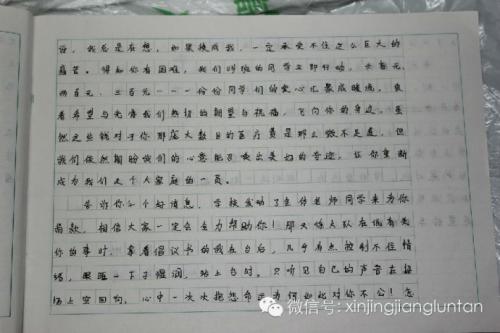 份，我总是在想，如果换成我，一定承受不住这么巨大的
痛苦。得知你有困难，我们班的同学立即行动，一百元、
两百元、三百元……一份份同学们的爱心汇聚成暖流，负
着希望与充满我们热切的期望与祝福，飞向你的身边。虽
然这些钱对于你那庞大数目的医疗费是那么微不足道，但
我们依然期盼我们的心意能造出美好的奇迹，让你重新
成为我们这个大家庭的一员。
告诉你一个好消息，学校发动了全体老师同学来为你
捐款，相信大家一定会全力帮助你！那天
你的事时，拿着倡议书的我在台后，几乎有点控制不住情
绪，眼眶一下子湿润，站上台时，只听见自己的声音在操
场上空回响，心中一次次抱怨命运为何如此对你不公！怎
微信号: xinjingjiangluntan